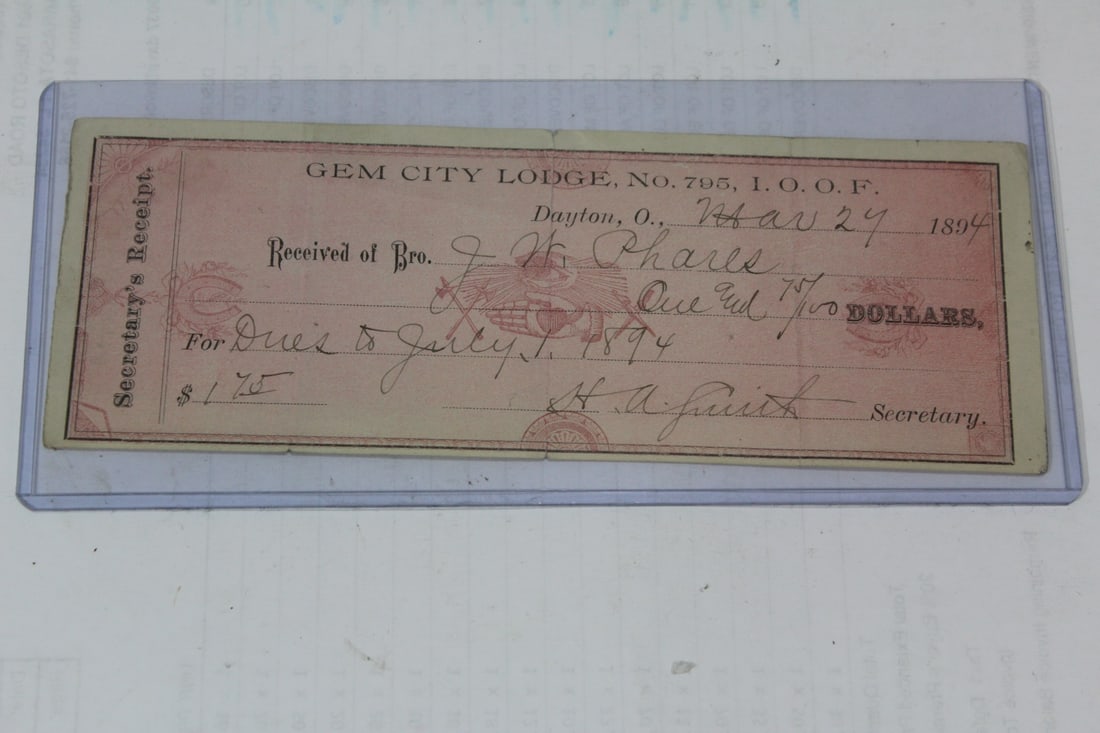 Secretary's Receipt.
GEM CITY LODGE, No. 795, I. O. O. F.
Dayton, O., Mar 27 1894
Received of Bro. J W. Phares
One and 75/100 DOLLARS,
For Dues to July 1. 1894
$ 1 75 H. A. Smith Secretary.